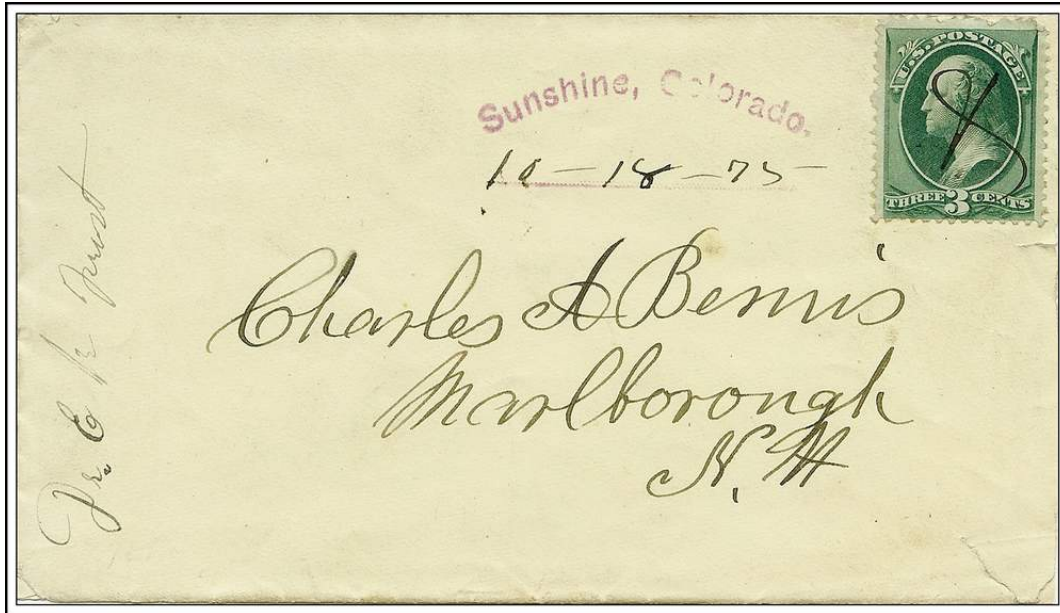 Sunshine, Colorado.
10-18-75
U.S. POSTAGE
THREE 3 CENTS
Charles A Bemis
Marlborough
N. H